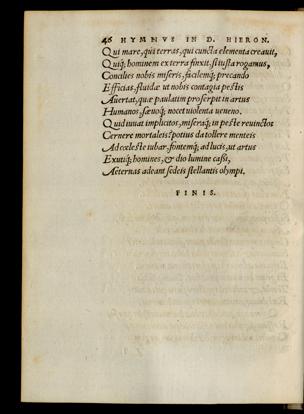 46 HYMNVS IN D. HIERON.
Qui mare, qui terras, qui cuncta elementa creauit,
Quiq; hominem ex terra finxit. si iusta rogamus,
Concilies nobis miseris, facilemq; precando
Efficias. fluidæ ut nobis contagia pestis
Auertat, quæ paulatim proserpit in artus
Humanos, sæuoq; nocet uiolenta ueneno.
Quid iuuat implicitos, miseraq; in peste reuinctos
Cernere mortaleis? potius da tollere menteis
Ad cœleste iubar, fontemq; ad lucis, ut artus
Exutiq; homines, & dio lumine cassi,
Aeternas adeant sedeis stellantis olympi.
FINIS.